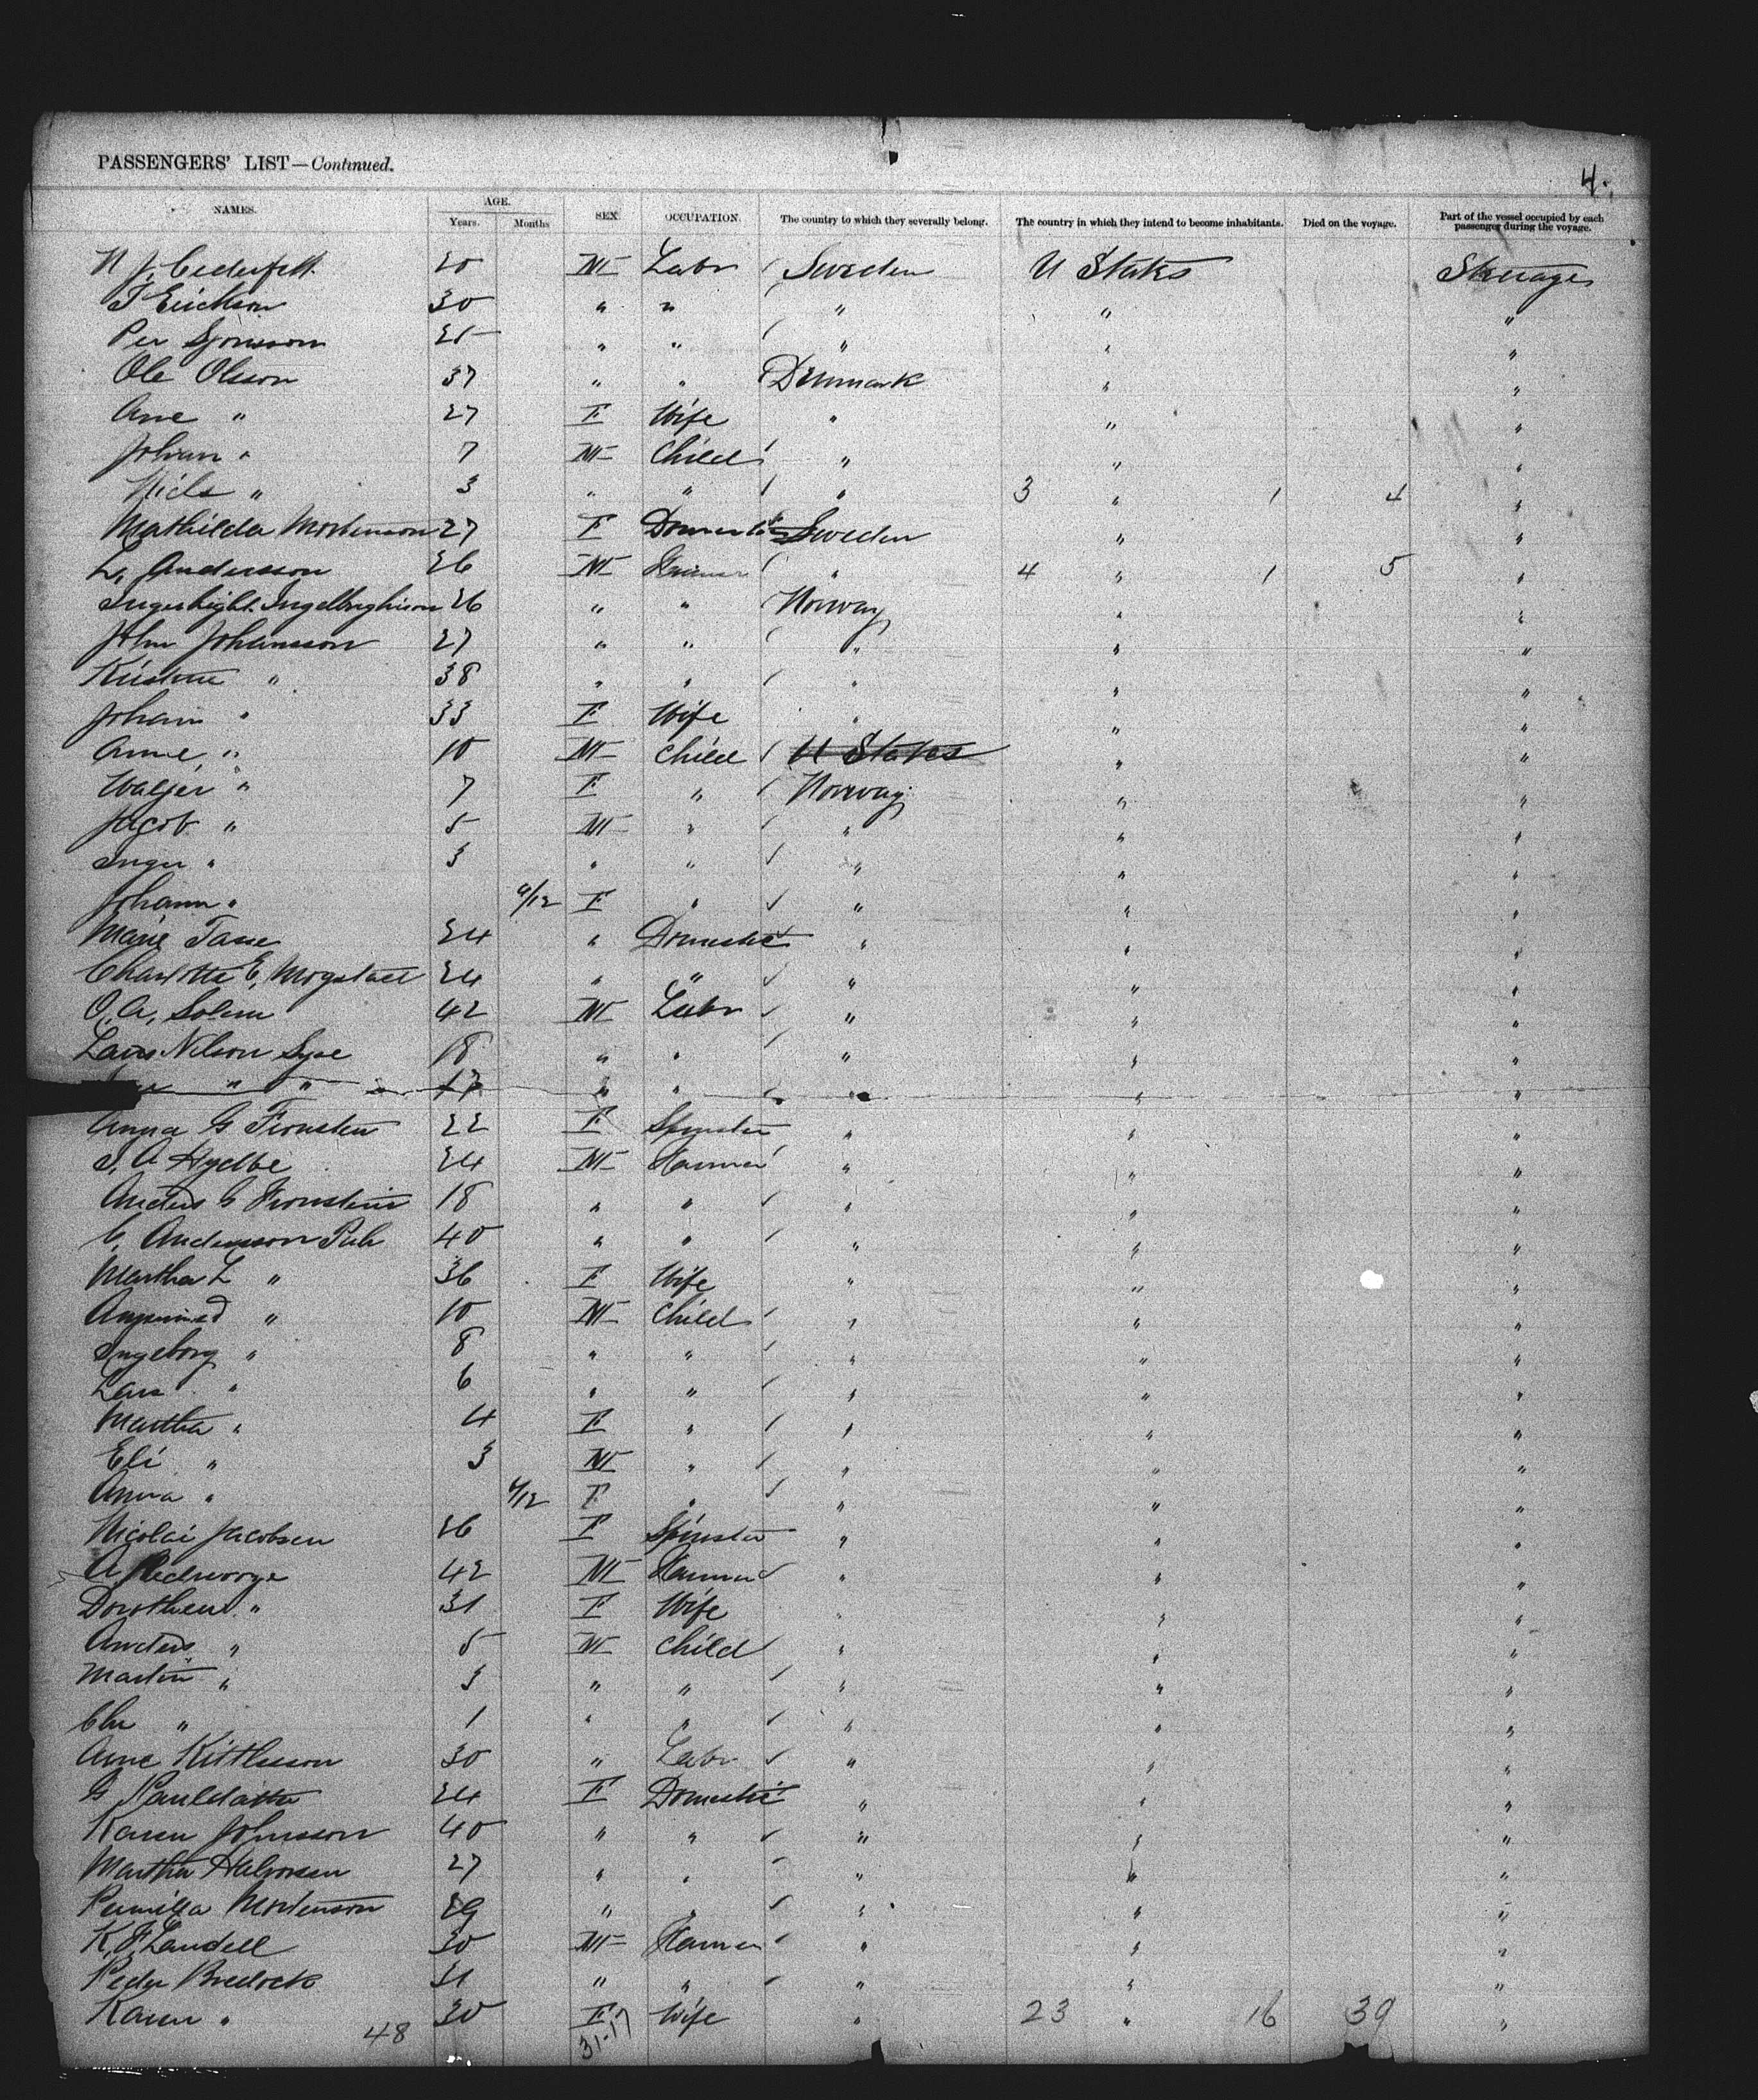 PASSENGERS' LIST—Continued.
4.
NAMES. AGE. Years. Months SEX. OCCUPATION. The country to which they severally belong. The country in which they intend to become inhabitants. Died on the voyage. Part of the vessel occupied by each passenger during the voyage.
20 M Labr Sweden U States Steerage
Erickson 30 " " " " "
Per 25 " " " " "
Ole Olsson 37 " " Denmark " "
Ane " 27 F Wife " " "
Johan " 7 M Child " " "
Niels " 3 " " " 3 " 1 4 "
Mathilda Mortenson 27 F Domestic Sweden " "
L. Andersson 26 M Farmer " 4 " 1 5 "
26 " " Norway " "
John Johansson 27 " " " " "
38 " " " " "
Johan " 33 F Wife " " "
Anne " 10 M Child U States " "
7 F " Norway " "
Jacob " 5 M " " " "
Inger " 3 " " " " "
Johann " /12 F " " " "
Marie 24 " Domestic " " "
Charlotte E. Mogstad 24 " " " " "
O. A. Solem 42 M Labr " " "
Lars Nilson Syse 18 " " " " "
" " 17 " " " " "
Anna G 22 F Spinster " " "
A 24 M Farmer " " "
Anders G 18 " " " " "
Anderson 40 " " " " "
Martha L " 36 F Wife " " "
" 10 M Child " " "
Ingeborg " 8 " " " " "
Lars " 6 " " " " "
Martha " 4 F " " " "
Eli " 3 M " " " "
Anna " /12 F " " " "
Nicolai Jacobsen 26 F Spinster " " "
A 42 M Farmer " " "
Dorothea " 31 F Wife " " "
Anders " 5 M Child " " "
Martin " 3 " " " " "
" 1 " " " " "
Arne Kittlesson 30 " Labr " " "
G 24 F Domestic " " "
Karen Johnsson 40 " " " " "
Martha Halvorsen 27 " " " " "
Pernilla Mortenson 29 " " " " "
K. F. Landell 30 M Farmer " " "
Peder 31 " " " " "
Karen " 30 F Wife " 23 " 16 39 "
48 31-17